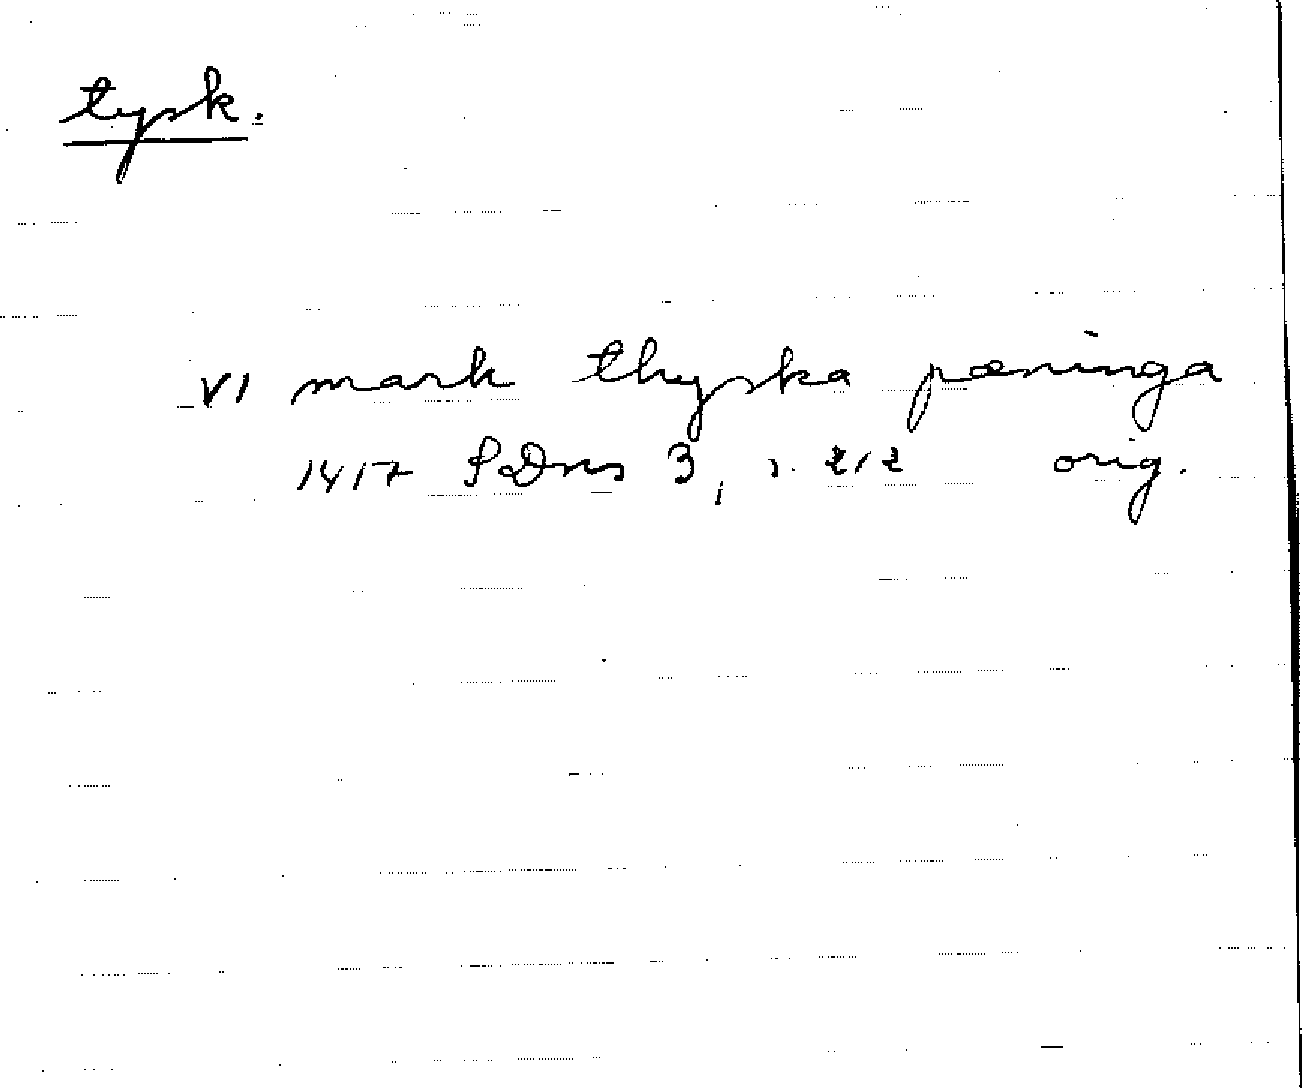 tysk.
VI mark thyska pæninga
1417 SDns 3, s. 212 orig.